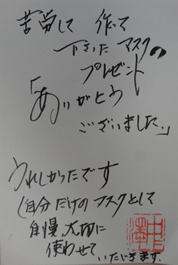 苦労して 作って
下さった マスクの
プレゼント
「ありがとう
ございました。」
うれしかったです
自分だけの マスクとして
自慢、大切に
使わせて
いただきます。